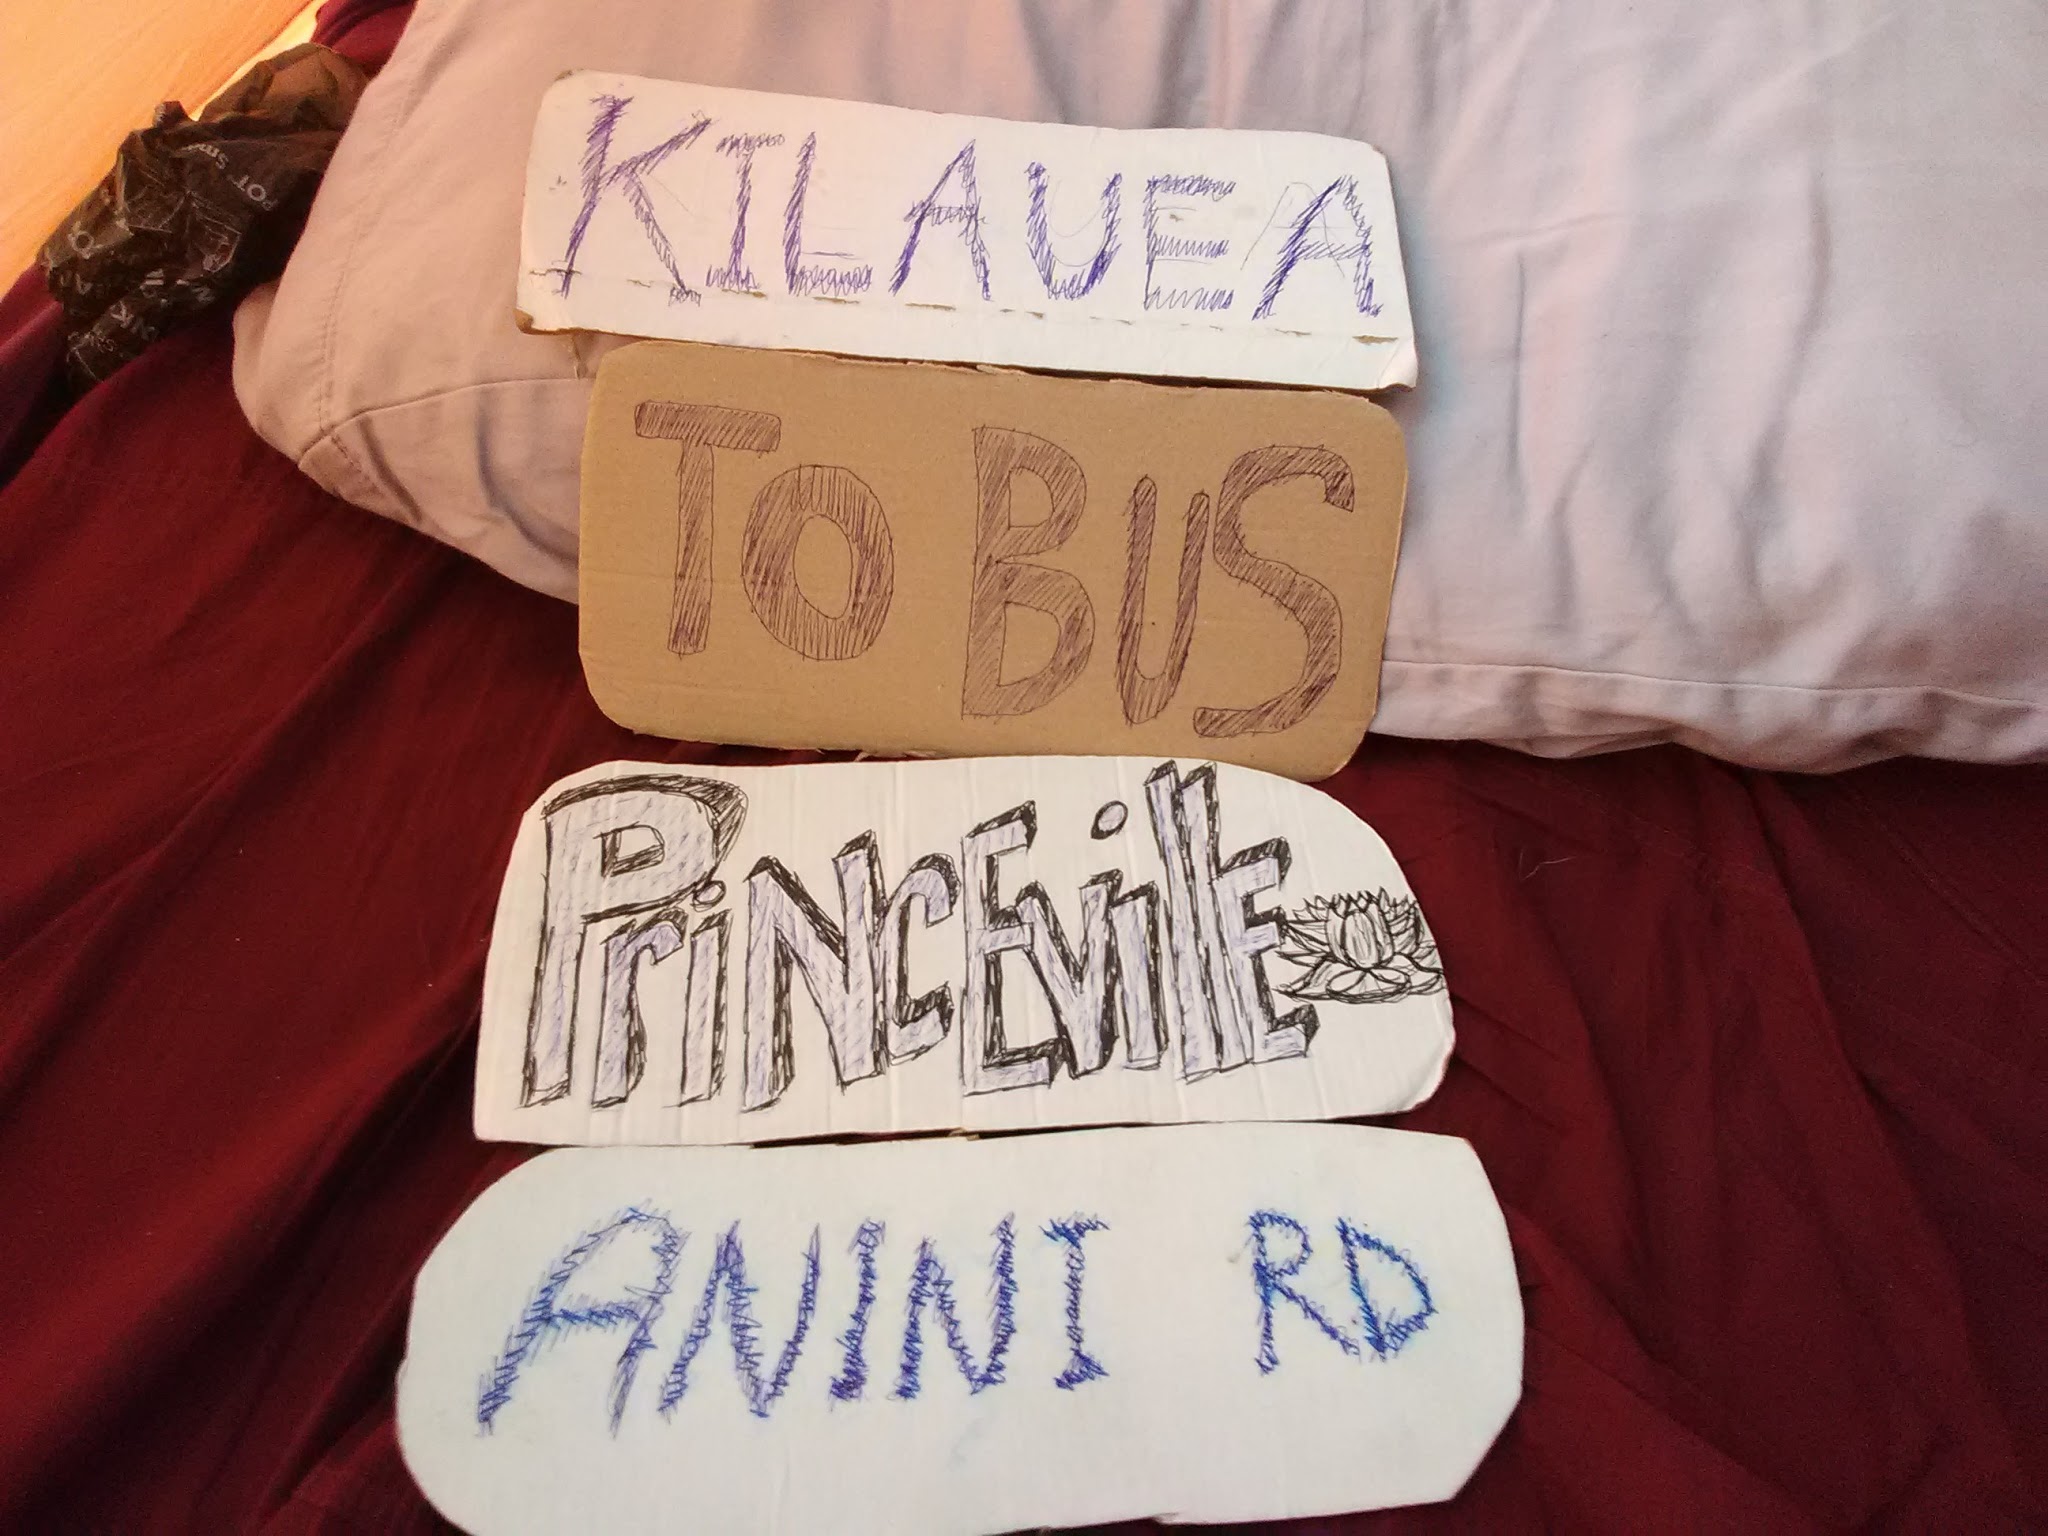 KILAUEA
TO BUS
PriNcEvillE
ANINI RD